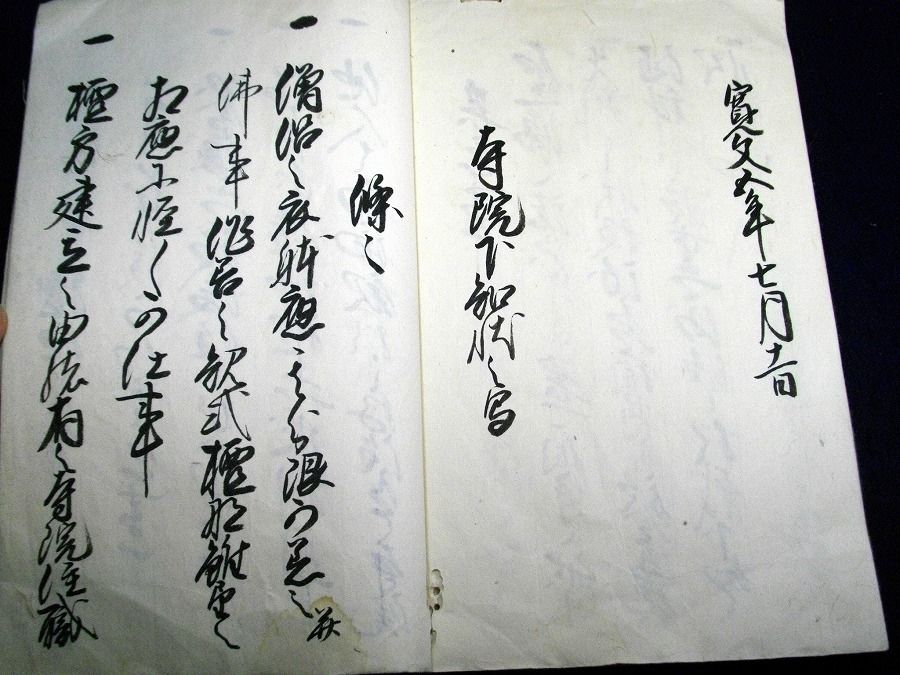 寛文五年七月十一日
寺院下知状之写
條々
一 僧侶之衣躰應其分限可着之并
佛事作善之規式檀那雖望之
相應ニ軽く可仕事
一 檀方建立之由緒有之寺院住職